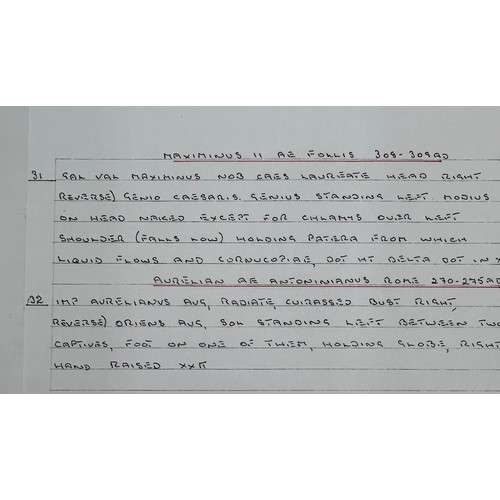 MAXIMINUS II AE FOLLIS 308-309AD
31 GAL VAL MAXIMINUS NOB CAES LAUREATE HEAD RIGHT
REVERSE) GENIO CAESARIS. GENIUS STANDING LEFT MODIUS
ON HEAD NAKED EXCEPT FOR CHLAMYS OVER LEFT
SHOULDER (FALLS LOW) HOLDING PATERA FROM WHICH
LIQUID FLOWS AND CORNUCOPIAE, DOT HT DELTA DOT IN X
AURELIAN AE ANTONINIANUS ROME 270-275AD
32 IMP AURELIANUS AUG, RADIATE, CUIRASSED BUST RIGHT,
REVERSE) ORIENS AUG, SOL STANDING LEFT BETWEEN TWO
CAPTIVES, FOOT ON ONE OF THEM, HOLDING GLOBE, RIGHT
HAND RAISED